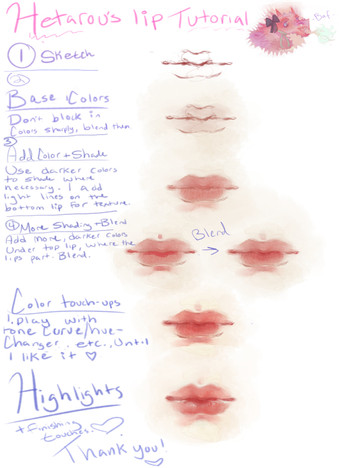 Hetarou's lip Tutorial
1 Sketch
2
Base Colors
Don't block in
Colors sharply, blend them
3
Add Color + Shade
Use darker colors
to shade where
necessary. I add
light lines on the
bottom lip for texture.
4 More Shading + Blend
Add more, darker colors
Under top lip, where the
lips part. Blend.
Blend
Color touch-ups
I play with
tone Curve/hue-
Changer, etc., Until
I like it ♡
Highlights
+ finishing
touches. ♡
Thank you!